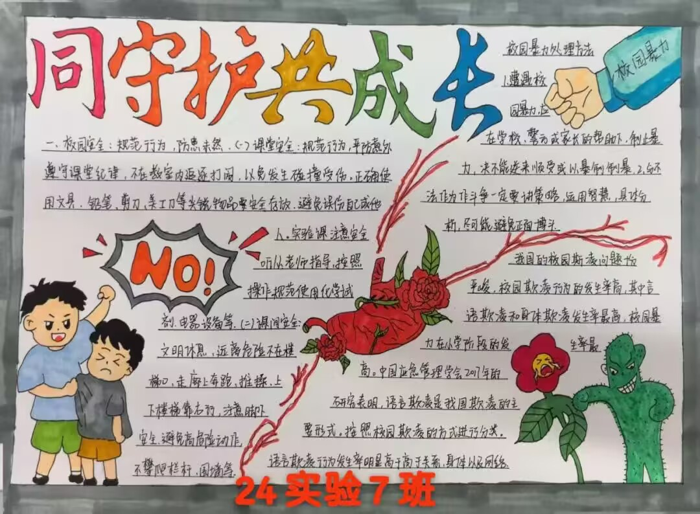 同守护共成长
一、校园安全：规范行为，防患未然，(一)课堂安全：规范行为，
遵守课堂纪律，不在教室内追逐打闹，以免发生碰撞受伤，正确使
用文具，铅笔、剪刀、美工刀等尖锐物品要安全存放，避免误伤自己或他
人。实验课注意安全
听从老师指导，按照
操作规范使用化学试
剂、电器设备等。(二)课间安全
文明休息，远离危险不在楼
梯口、走廊上奔跑、推搡，上
下楼梯靠右行，注意脚下
安全，避免高危险动作
不攀爬栏杆、围墙等
NO!
校园暴力处理方法
1.遭遇校
园暴力，应
校园暴力
在学校、警方或家长的帮助下，制止暴
力，决不能逆来顺受或以暴制暴。2.
法作为作斗争一定要讲策略，运用智慧，具体分
析，尽可能避免正面搏斗
我国的校园欺凌问题
校园欺凌行为的发生率高，其中言
语欺凌和身体欺凌发生率最高，校园暴
力在小学阶段的发
生率最
高。中国应急管理学会2017年的
研究表明，语言欺凌是我国欺凌的主
要形式。按照校园欺凌的方式进行分类。
语言欺凌行为发生率明显高于其
24实验7班